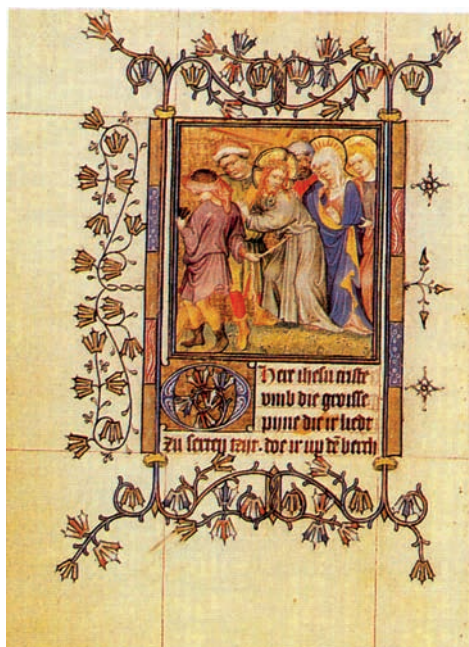 Here ihesu criste
vmb die grousse
pyne die ir liedt
zu seren tayt. doe ir up dē berch